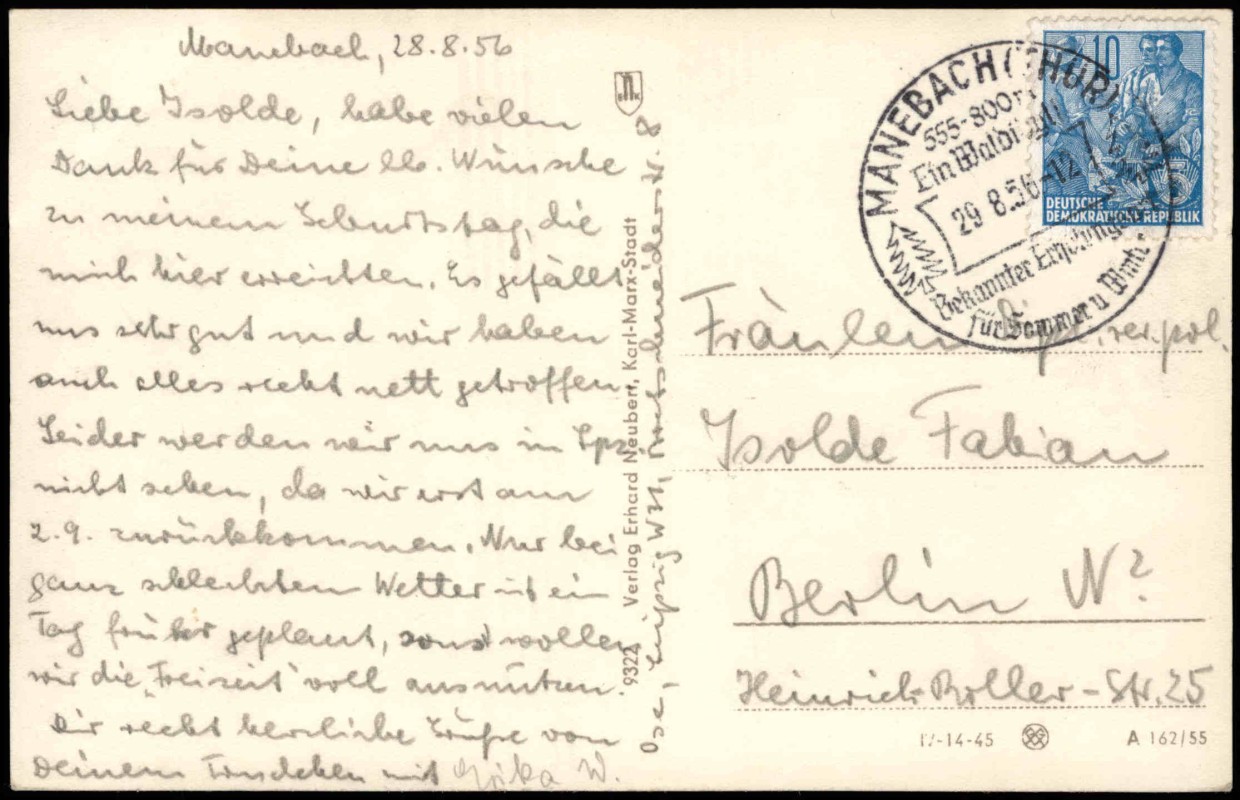 Manebach, 28.8.56
Liebe Isolde, habe vielen
Dank für Deine lb. Wünsche
zu meinem Geburtstag, die
mich hier erreichten. Es gefällt
uns sehr gut und wir haben
auch alles recht nett getroffen.
Leider werden wir uns in Lpz
nicht sehen, da wir erst am
2.9. zurückkommen. Nur bei
ganz schlechtem Wetter ist ein
Tag früher geplant, sonst wollen
wir die "Freizeit" voll ausnützen.
Dir recht herzliche Grüße von
Deinem mit W.
9322 Verlag Erhard Neubert, Karl-Marx-Stadt
Leipzig W31,
8
MANEBACH (THÜR)
555-800m
Ein Waldi
29.8.56-12
Bekannter Erholungs
für Sommer u Winter
10
DEUTSCHE
DEMOKRATISCHE REPUBLIK
Fräulein
Isolde Fabian
Berlin N?
Heinrich-Roller-Str. 25
IV-14-45 A 162/55